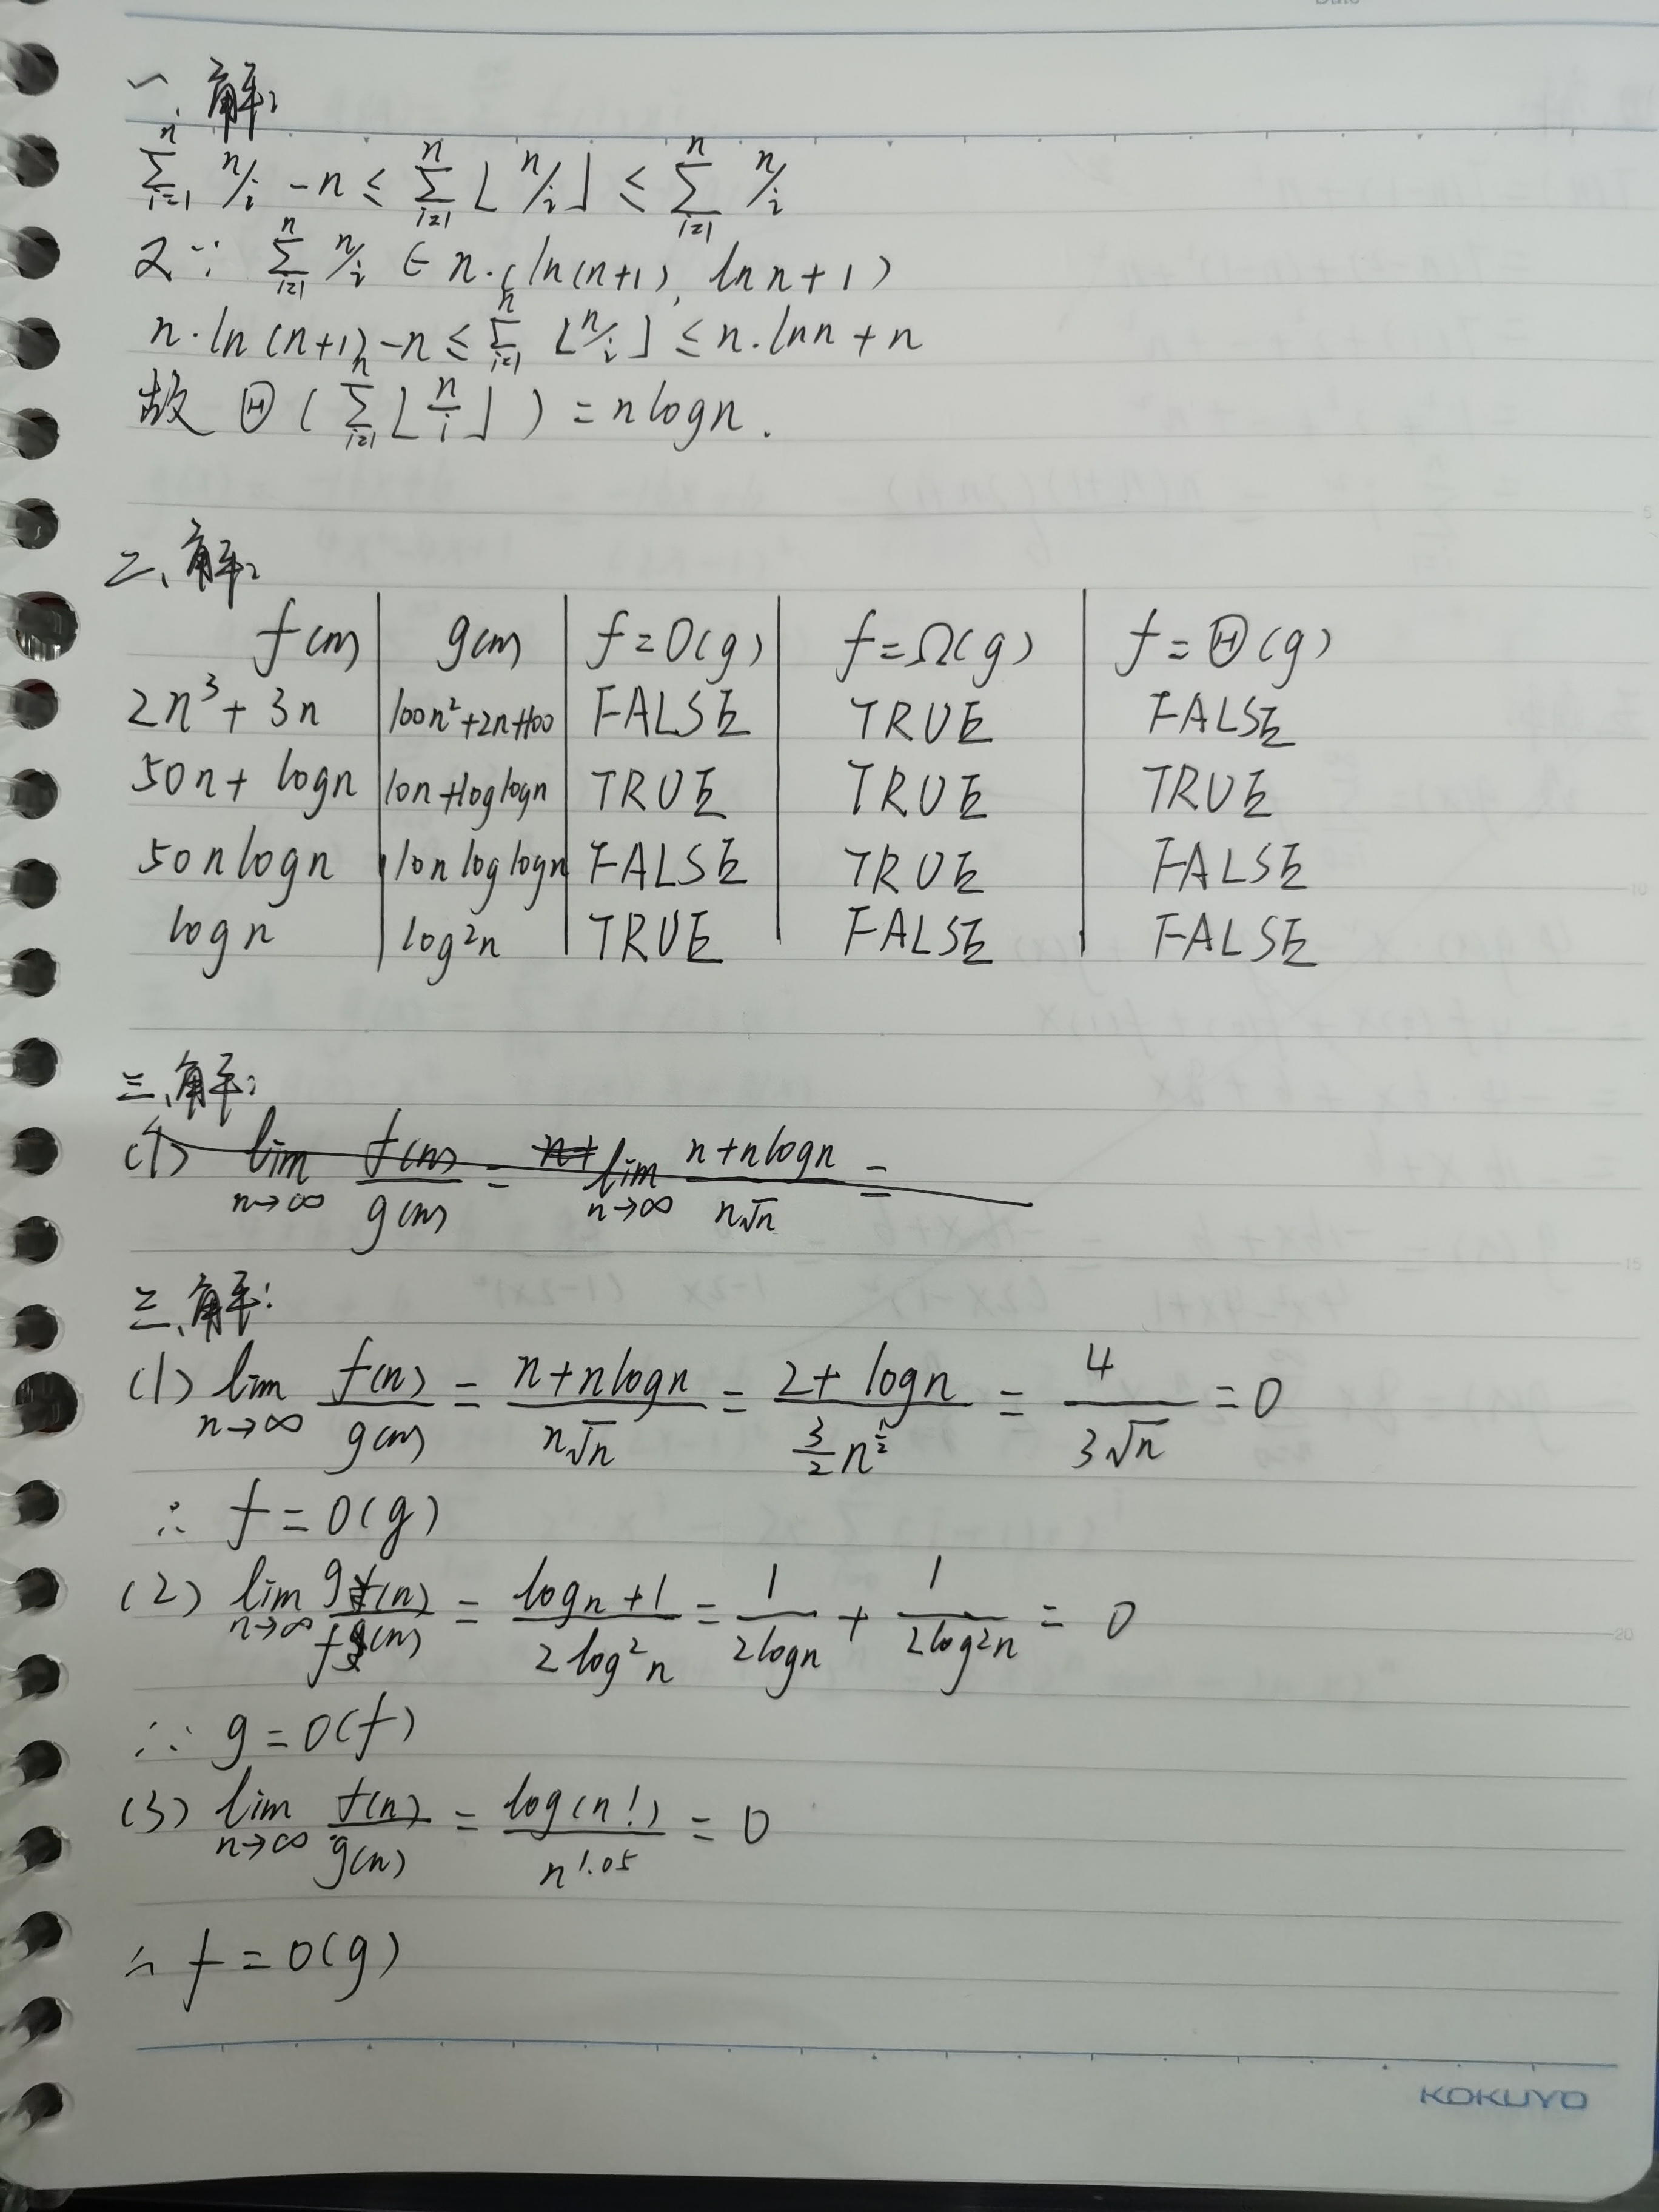 Date
一、解：
∑_{i=1}^{n} n/i - n ≤ ∑_{i=1}^{n} ⌊n/i⌋ ≤ ∑_{i=1}^{n} n/i
又∵ ∑_{i=1}^{n} n/i ∈ n·(ln(n+1), ln n + 1)
n·ln(n+1) - n ≤ ∑_{i=1}^{n} ⌊n/i⌋ ≤ n·ln n + n
故 Θ(∑_{i=1}^{n} ⌊n/i⌋) = n log n.
二、解：
f(n) | g(n) | f=O(g) | f=Ω(g) | f=Θ(g)
2n³+3n | 100n²+2n+100 | FALSE | TRUE | FALSE
50n+logn | 10n+loglogn | TRUE | TRUE | TRUE
50nlogn | 10nloglogn | FALSE | TRUE | FALSE
logn | log²n | TRUE | FALSE | FALSE
三、解：
(1) lim_{n→∞} f(n)/g(n) = n+ lim_{n→∞} (n+nlogn)/(n√n) =
三、解：
(1) lim_{n→∞} f(n)/g(n) = (n+nlogn)/(n√n) = (2+logn)/((3/2)n^{1/2}) = 4/(3√n) = 0
∴ f=O(g)
(2) lim_{n→∞} g(n)/f(n) = (logn+1)/(2log²n) = 1/(2logn) + 1/(2log²n) = 0
∴ g=O(f)
(3) lim_{n→∞} f(n)/g(n) = log(n!)/n^{1.05} = 0
∴ f=O(g)
KOKUYO